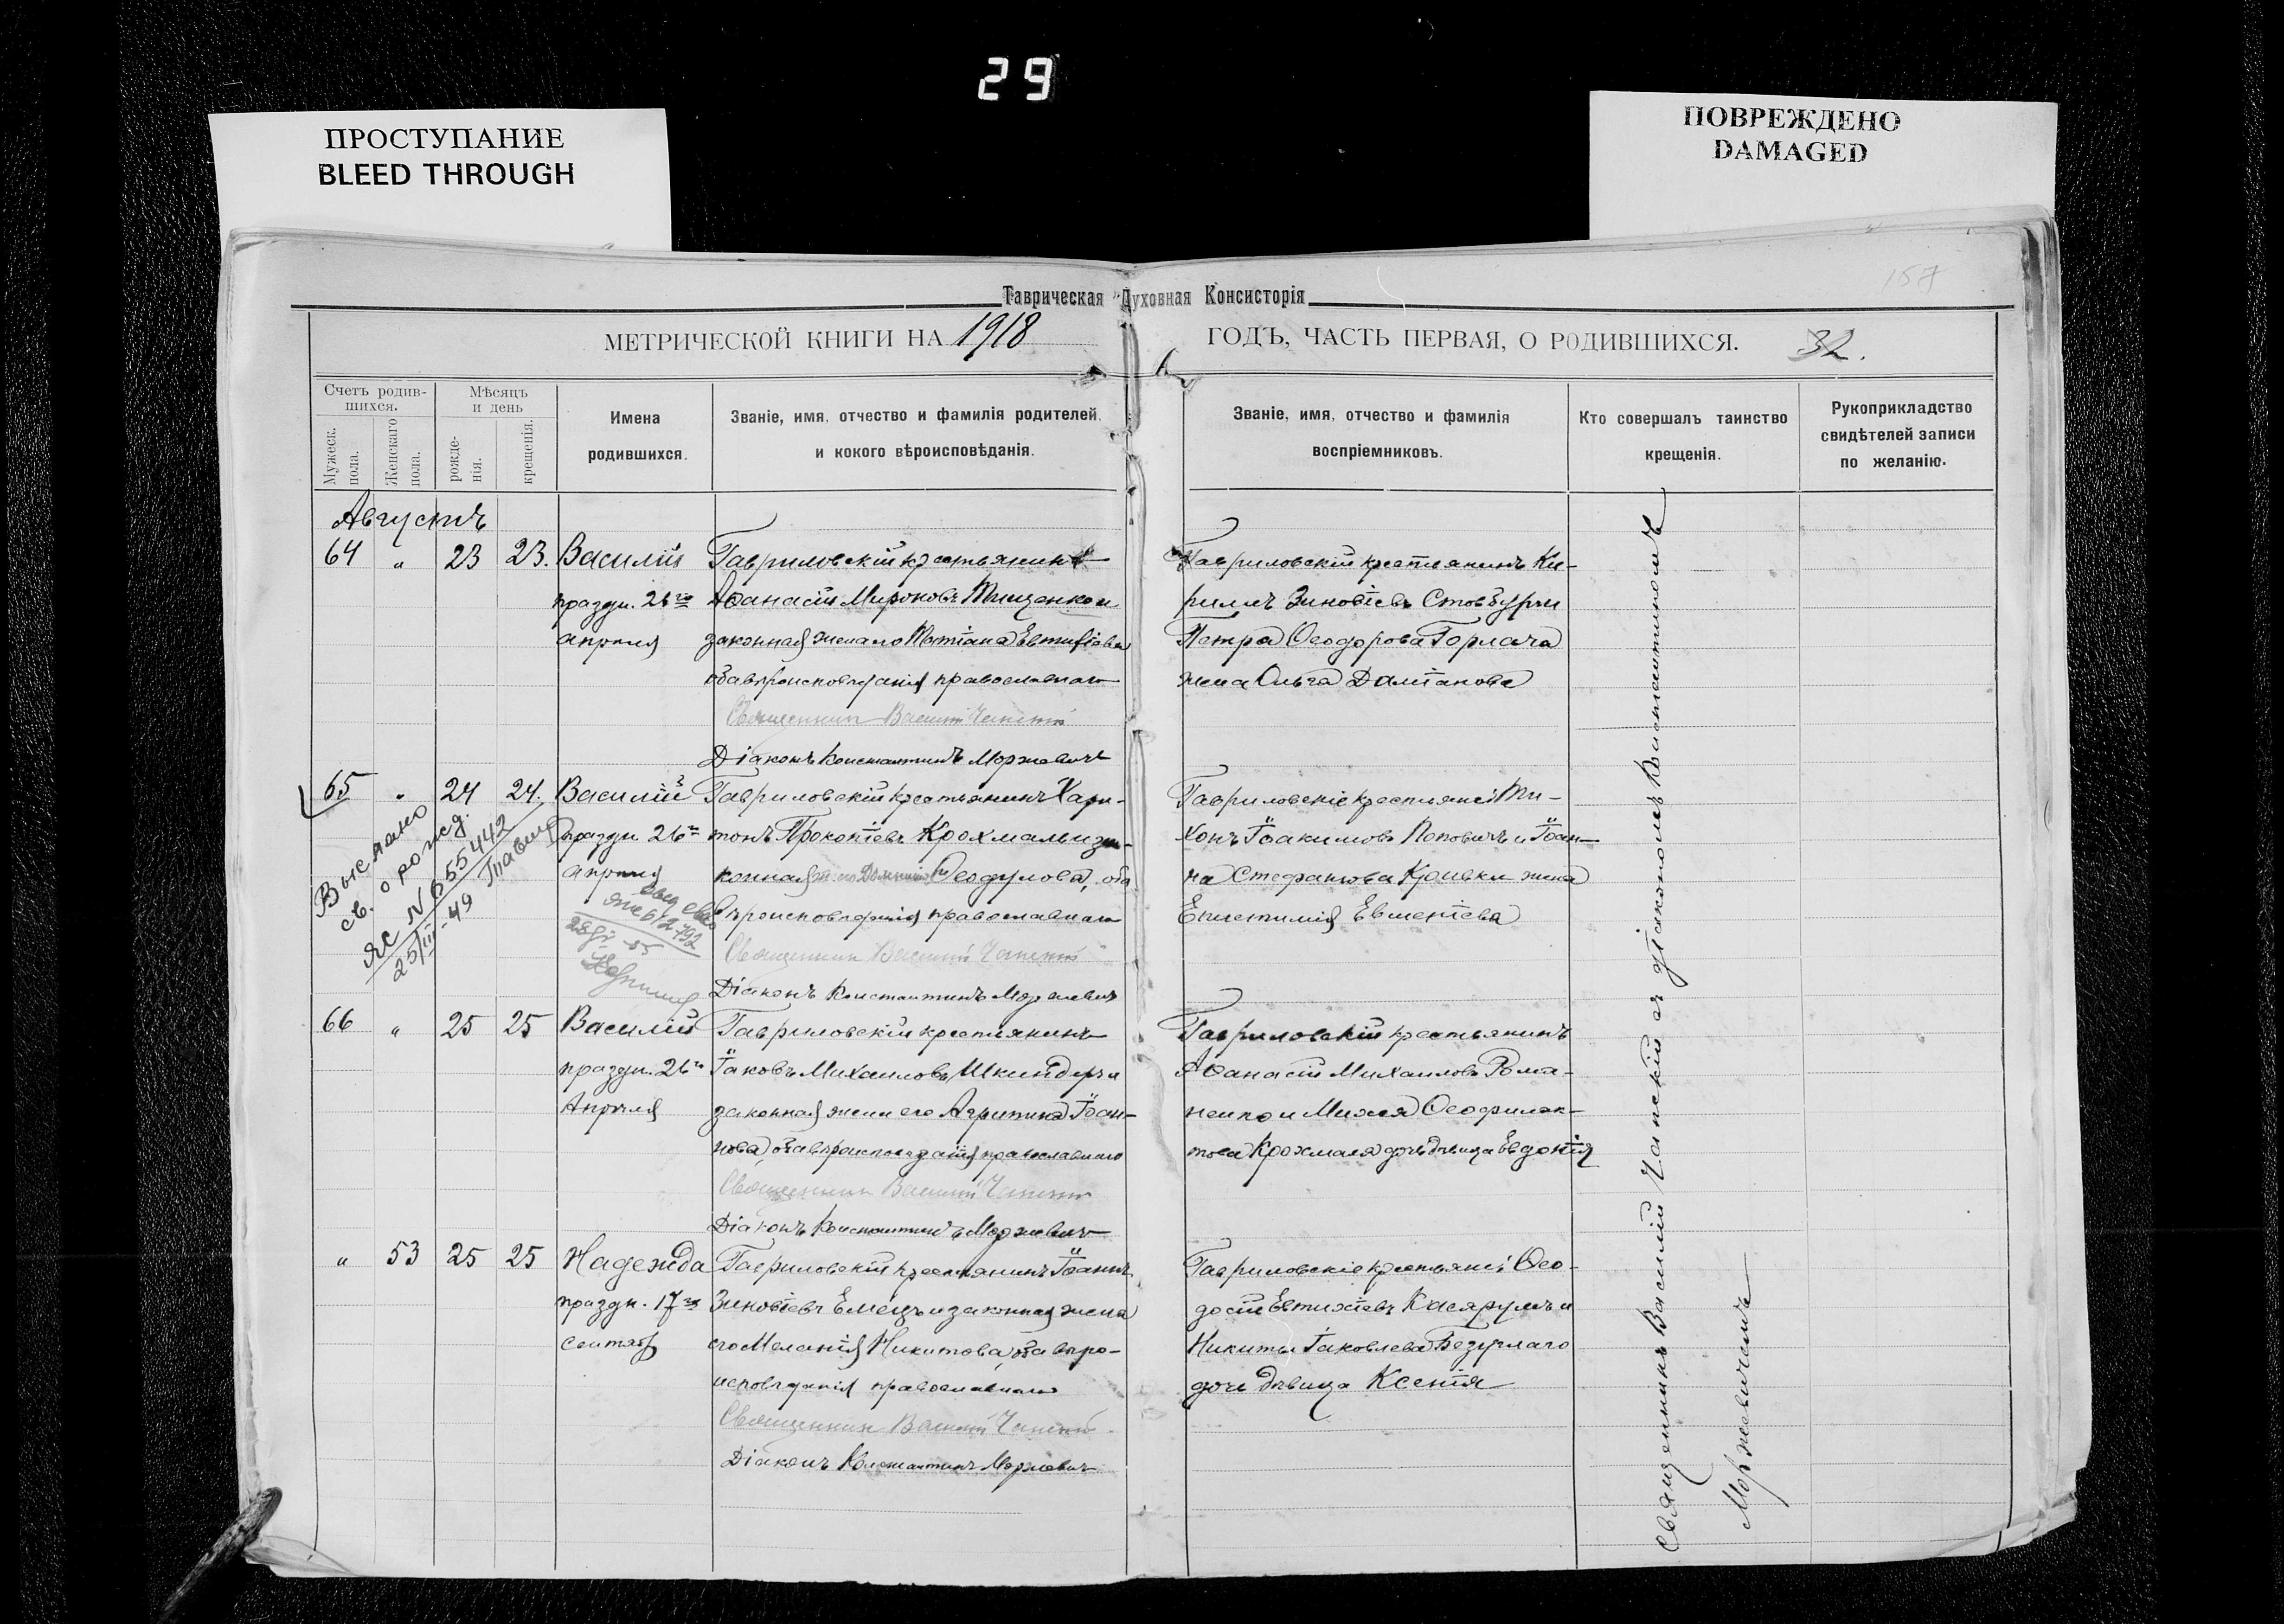 29
ПРОСТУПАНИЕ
BLEED THROUGH
ПОВРЕЖДЕНО
DAMAGED
157
Таврическая Духовная Консисторія
МЕТРИЧЕСКОЙ КНИГИ НА 1918
ГОДЪ, ЧАСТЬ ПЕРВАЯ, О РОДИВШИХСЯ. 32.
Счетъ родив-
шихся.
Мужеск.
пола.
Женскаго
пола.
Мѣсяцъ
и день
рожде-
нія.
крещенія.
Имена
родившихся.
Званіе, имя, отчество и фамилія родителей,
и кокого вѣроисповѣданія.
Званіе, имя, отчество и фамилія
воспріемниковъ.
Кто совершалъ таинство
крещенія.
Рукоприкладство
свидѣтелей записи
по желанію.
Августъ
64 " 23 23. Василій
праздн. 26го
апрѣля
Гавриловскій крестьянинъ
Аѳанасій Мироновъ Тищенко и
законная жена его Татіана Евтихіева
оба вѣроисповѣданія православнаго
Священникъ Василій Чапскій
Діаконъ Константинъ Моржевичъ
Гавриловскій крестьянинъ Ки-
риллъ Зиновіевъ Стовбуръ и
Петра Ѳеодорова Горлача
жена Ольга Даміанова
65 " 24 24. Василій
праздн. 26го
апрѣля
Гавриловскій крестьянинъ Хари-
тонъ Прокопіевъ Крохмаль и за-
конная жена его Ѳеодулова, оба
вѣроисповѣданія православнаго
Священникъ Василій Чапскій
Діаконъ Константинъ Моржевичъ
Гавриловскіе крестьяне: Ти-
хонъ Іоакимовъ Поповичъ и Іоан-
на Стефанова Кривки жена
Епистимія Евменіева
Выслано
св. о рожд.
ЯС № 655442
25/III-49
66 " 25 25 Василій
праздн. 26го
Апрѣля
Гавриловскій крестьянинъ
Іаковъ Михаиловъ Шкиндеръ и
законная жена его Агрипина Іоан-
нова, оба вѣроисповѣданія православнаго
Священникъ Василій Чапскій
Діаконъ Константинъ Моржевичъ
Гавриловскій крестьянинъ
Аѳанасій Михаиловъ Рома-
ненко и Михея Ѳеофилак-
това Крохмаля дочь дѣвица Евдокія
" 53 25 25 Надежда
праздн. 17го
Сентяб
Гавриловскій крестьянинъ Іоаннъ
Зиновіевъ Емецъ и законная жена
его Меланія Никитова, оба вѣро-
исповѣданія православнаго
Священникъ Василій Чапскій
Діаконъ Константинъ Моржевичъ
Гавриловскіе крестьяне: Ѳео-
досій Евтихіевъ Касярумъ и
Никиты Іаковлева Безуглаго
дочь дѣвица Ксенія
Священникъ Василій Чапскій съ діакономъ Константиномъ
Моржевичемъ